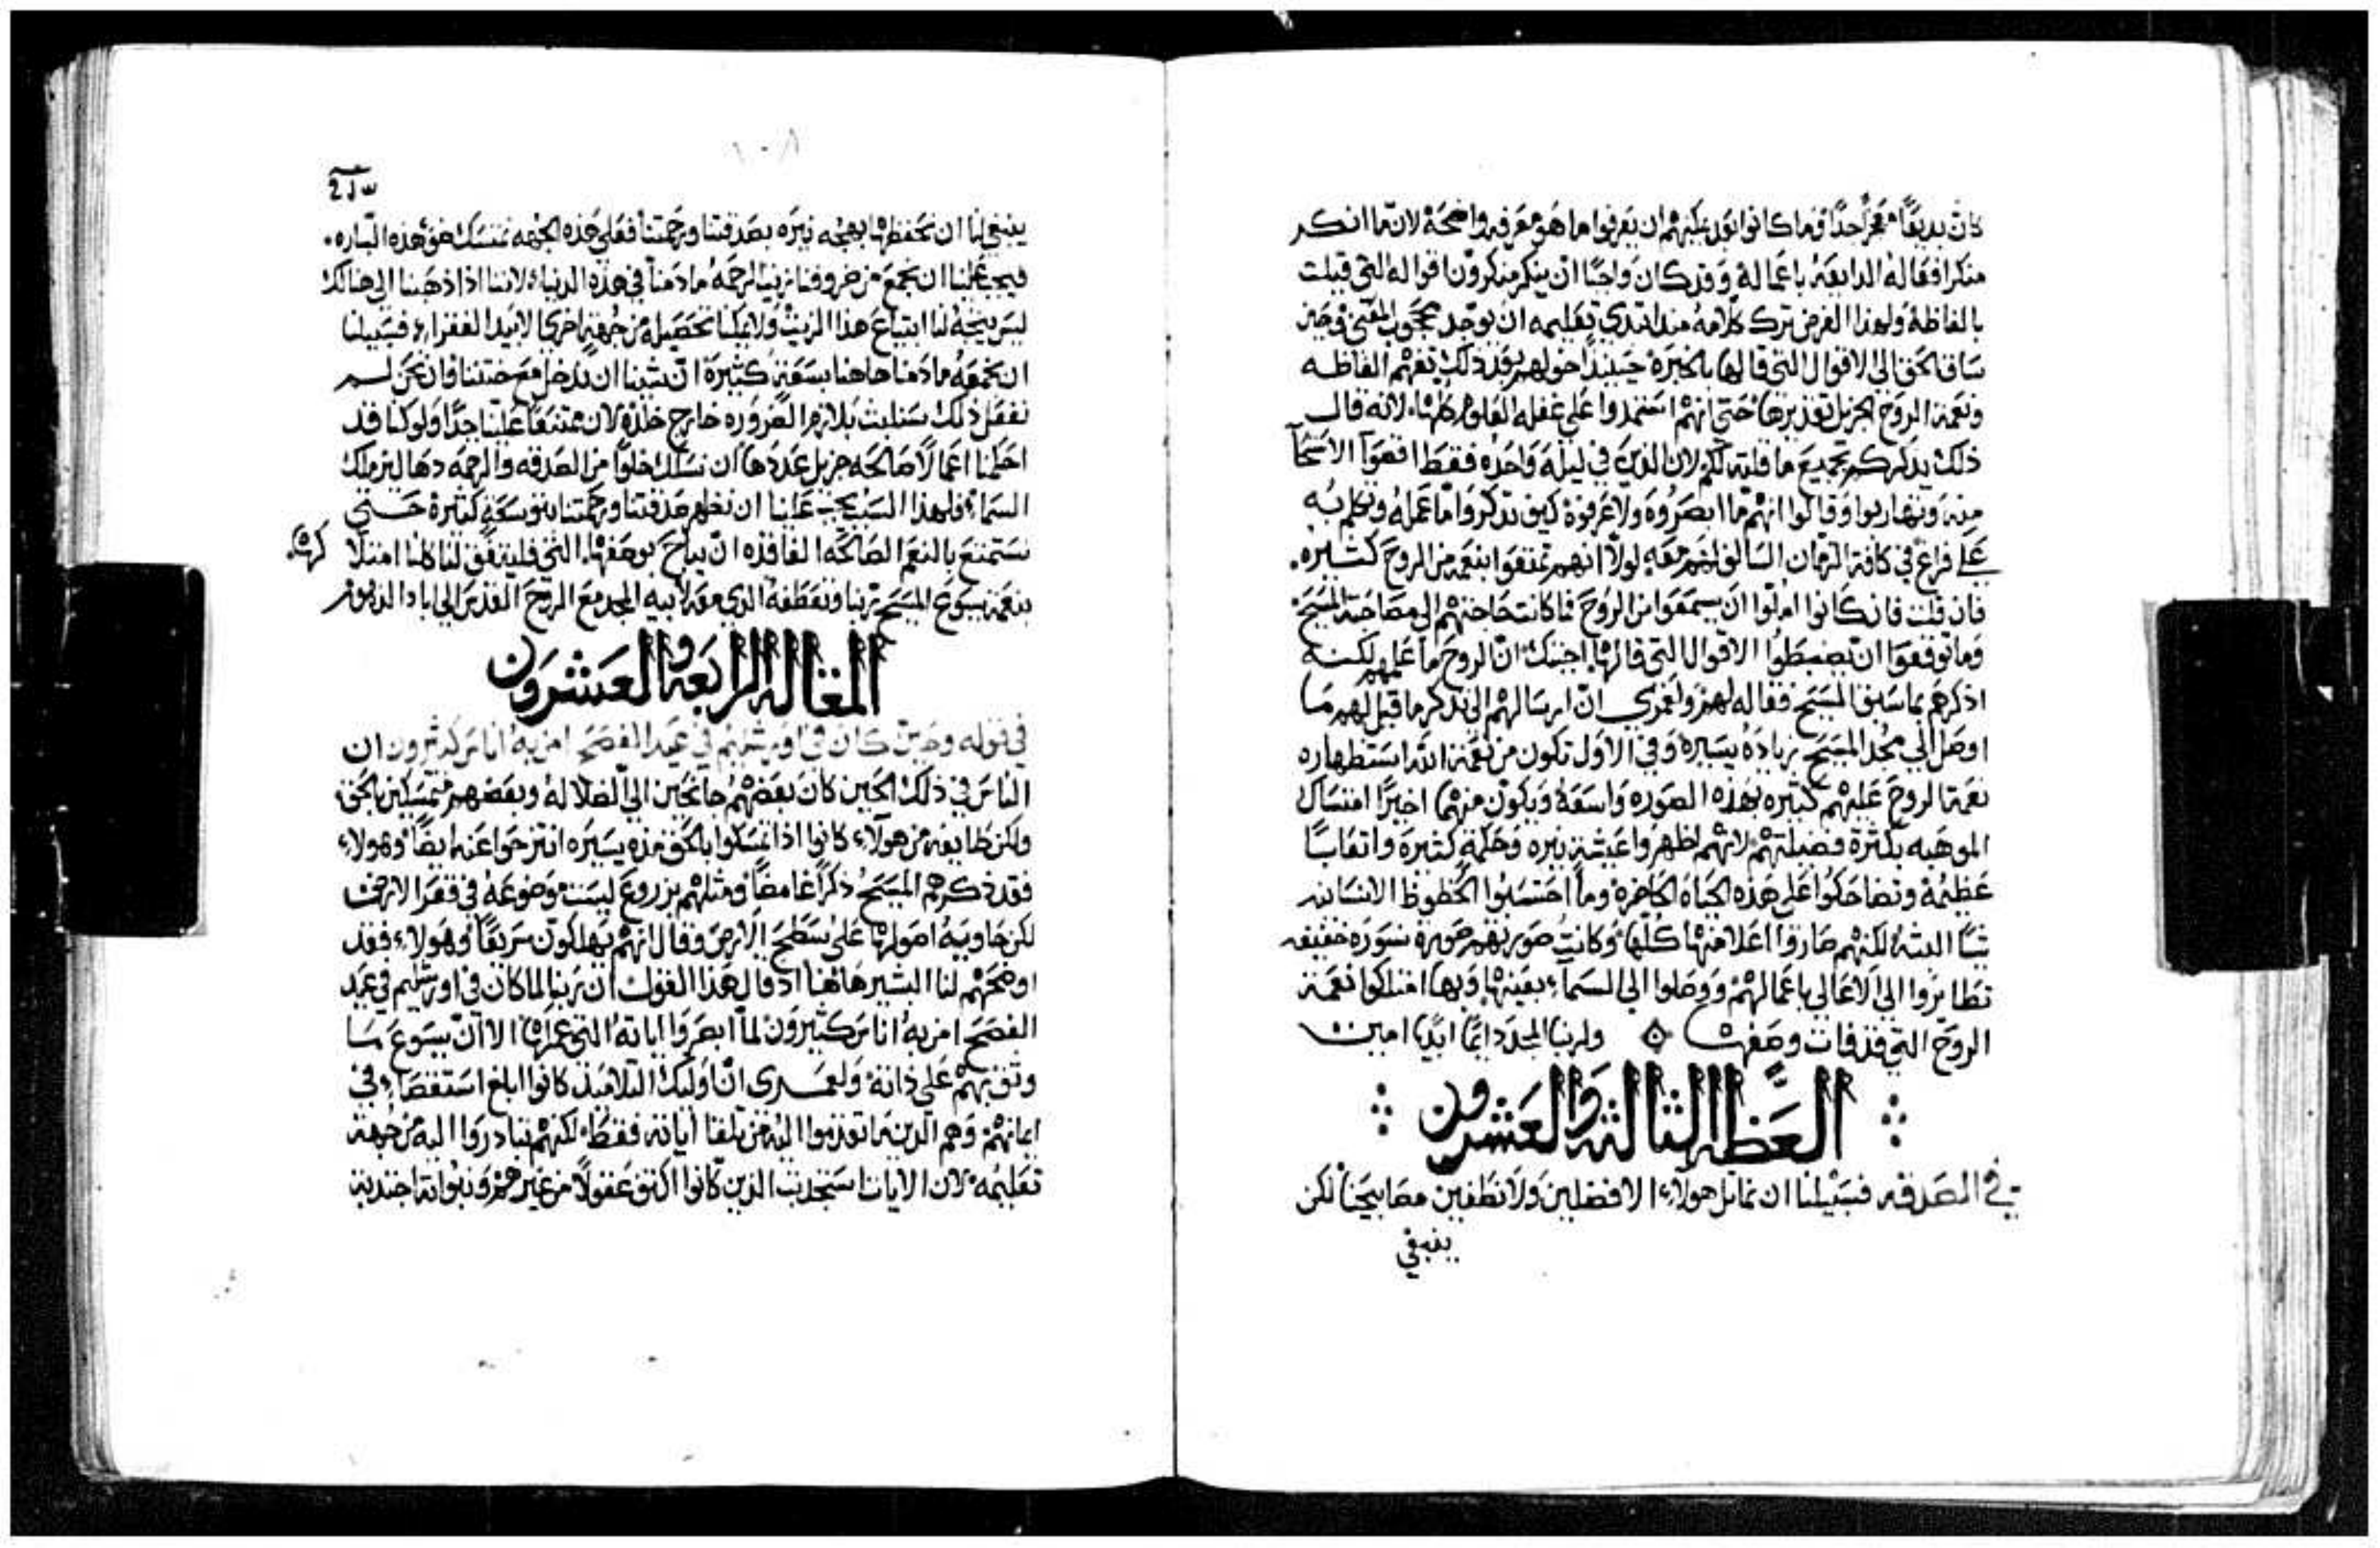 منكرا فقاله الدايعه باعماله وقد كان واجبًا ان ينكر منكرون اقواله التي قيلت
بالفاظه ولهذا الغرض ترك كلامه منذ ابتدي تعليمه ان يوجد محجوب المعني في حين
ساق الحق الى الاقوال التي قالها بالخبره حينيذٍ حولهم بعد ذلك تفهم الفاظه
ونعمة الروح الجزيل تقديرها حتى انهم استمدوا على غفله العلوم كلها لانه قال
ذلك يذكركم بجميع ما قلته لكم لان الذين في ليلة واحده فقط اقصوا الاسخا
منه وتهاربوا وقالوا انهم ما ابصروه ولا عرفوه كيف تذكروا ما عمله وتكلم به
على فراغ في كافة الزمان السالف لهم معه لولا انهم تمتعوا بنعمه من الروح كثيره.
فان قلت فان كانوا املوا ان يسمعوا من الروح فما كانت حاجتهم الى مصاحبة المسيح
وما توقعوا ان يضبطوا الاقوال التي قالها اجبتك ان الروح ما علمهم لكنه
اذكرهم بما سبق المسيح فقاله لهم ولعمري ان ارسالهم الى تذكر ما قيل لهم مما
اوصل الي مجد المسيح زيادة يسيره وفي الاول تكون من نعمة الله استظهاره
نعمة الروح عليهم كثيره بهذه الصوره واسعة ويكون منهما اخيرًا امتساك
الموهبه بكثرة فضيلتهم لانهم اظهروا عيشة نيره وحكمة كثيرة واتعابًا
عظيمة وتضاحكوا على هذه الحياه الحاضرة وما احتسبوا الحظوظ الانسانيه
شيًا البته لكنهم صاروا اعلا منها كلها وكانت صورتهم صورة نسوره خفيفه
تطايروا الى الاعالي باعمالهم ووصلوا الى السماء بعينها وبها امتلكوا نعمة
الروح التي قد فات وصفها ولربنا المجد دايمًا ابديا امين
العظه الثالثه والعشرون
في الصدقه فسبيلنا ان نماثل هولاء الافضلين ولا نطفين مصابيحنا لكن
ينبغي
ينبغي لنا ان نحفظها بهجه نيره بصدقتنا ورحمتنا فعلى هذه الجهه نمتسك ضو هذه الناره.
فيجب علينا ان نجمع من ظروفنا زيتا لرحمه ما دمنا في هذه الدنيا لاننا اذا ذهبنا الى هنالك
ليس يتجه لنا ابتياع هذا الزيت ولا يمكنا تحصيله من جهة اخري الا بيد الفقراء فسبيلنا
ان نجمعه ما دمنا هاهنا بسعة كثيرة ان شينا ان ندخل مع ختننا وان نحن لم
نفعل ذلك سنلبث بلازم الضروره خارج خدره لان ممتنعًا علينا جدًا ولو كنا قد
احكمنا اعمالًا صالحه جزيل عددها ان نسلك خلوًا من الصدقه والرحمه دهاليز ملك
السماء فلهذا السبب يجب علينا ان نظهر صدقتنا ورحمتنا بتوسعة كثيرة حتى
نستمتع بالنعم الصالحه الفاقده ان يباح بوصفها التي فليتفق لنا كلنا امتلاكها
بنعمة يسوع المسيح ربنا وتعطفه الذي معه لابيه المجد مع الروح القدس الى اباد الدهور
المقاله الرابعه والعشرون
في قوله وحين كان في اورشليم في عيد الفصح امن به اناس كثيرون ان
الناس في ذلك الحين كان بعضهم جانحين الى الضلاله وبعضهم متمسكين بالحق
ولكن طايفه من هولاء كانوا اذا تمسكوا بالحق مده يسيره انتزحوا عنه ايضًا وهولاء
فقد ذكرهم المسيح ذكرًا غامضًا ومثلهم بزروع ليست موضوعه في قعر الارض
لكن حاويه اصولها على سطح الارض وقال انهم يهلكون سريعًا وهولاء فقد
اوضحهم لنا البشير هاهنا اذ قال هذا القول ان ربنا لما كان في اورشليم في عيد
الفصح امن به اناس كثيرون لما ابصروا اياته التي عملها الا ان يسوع ما
وثق بهم على ذاته ولعمري ان اوليك التلاميذ كانوا ابلغ استقصاءً في
ايمانهم وهم الذين ما تقدموا اليه من تلقا اياته فقط لكنهم تبادروا اليه من جهة
تعليمه لان الايات استجدبت الذين كانوا اكثف عقولًا من غيرهم ونبواته اجتذبت